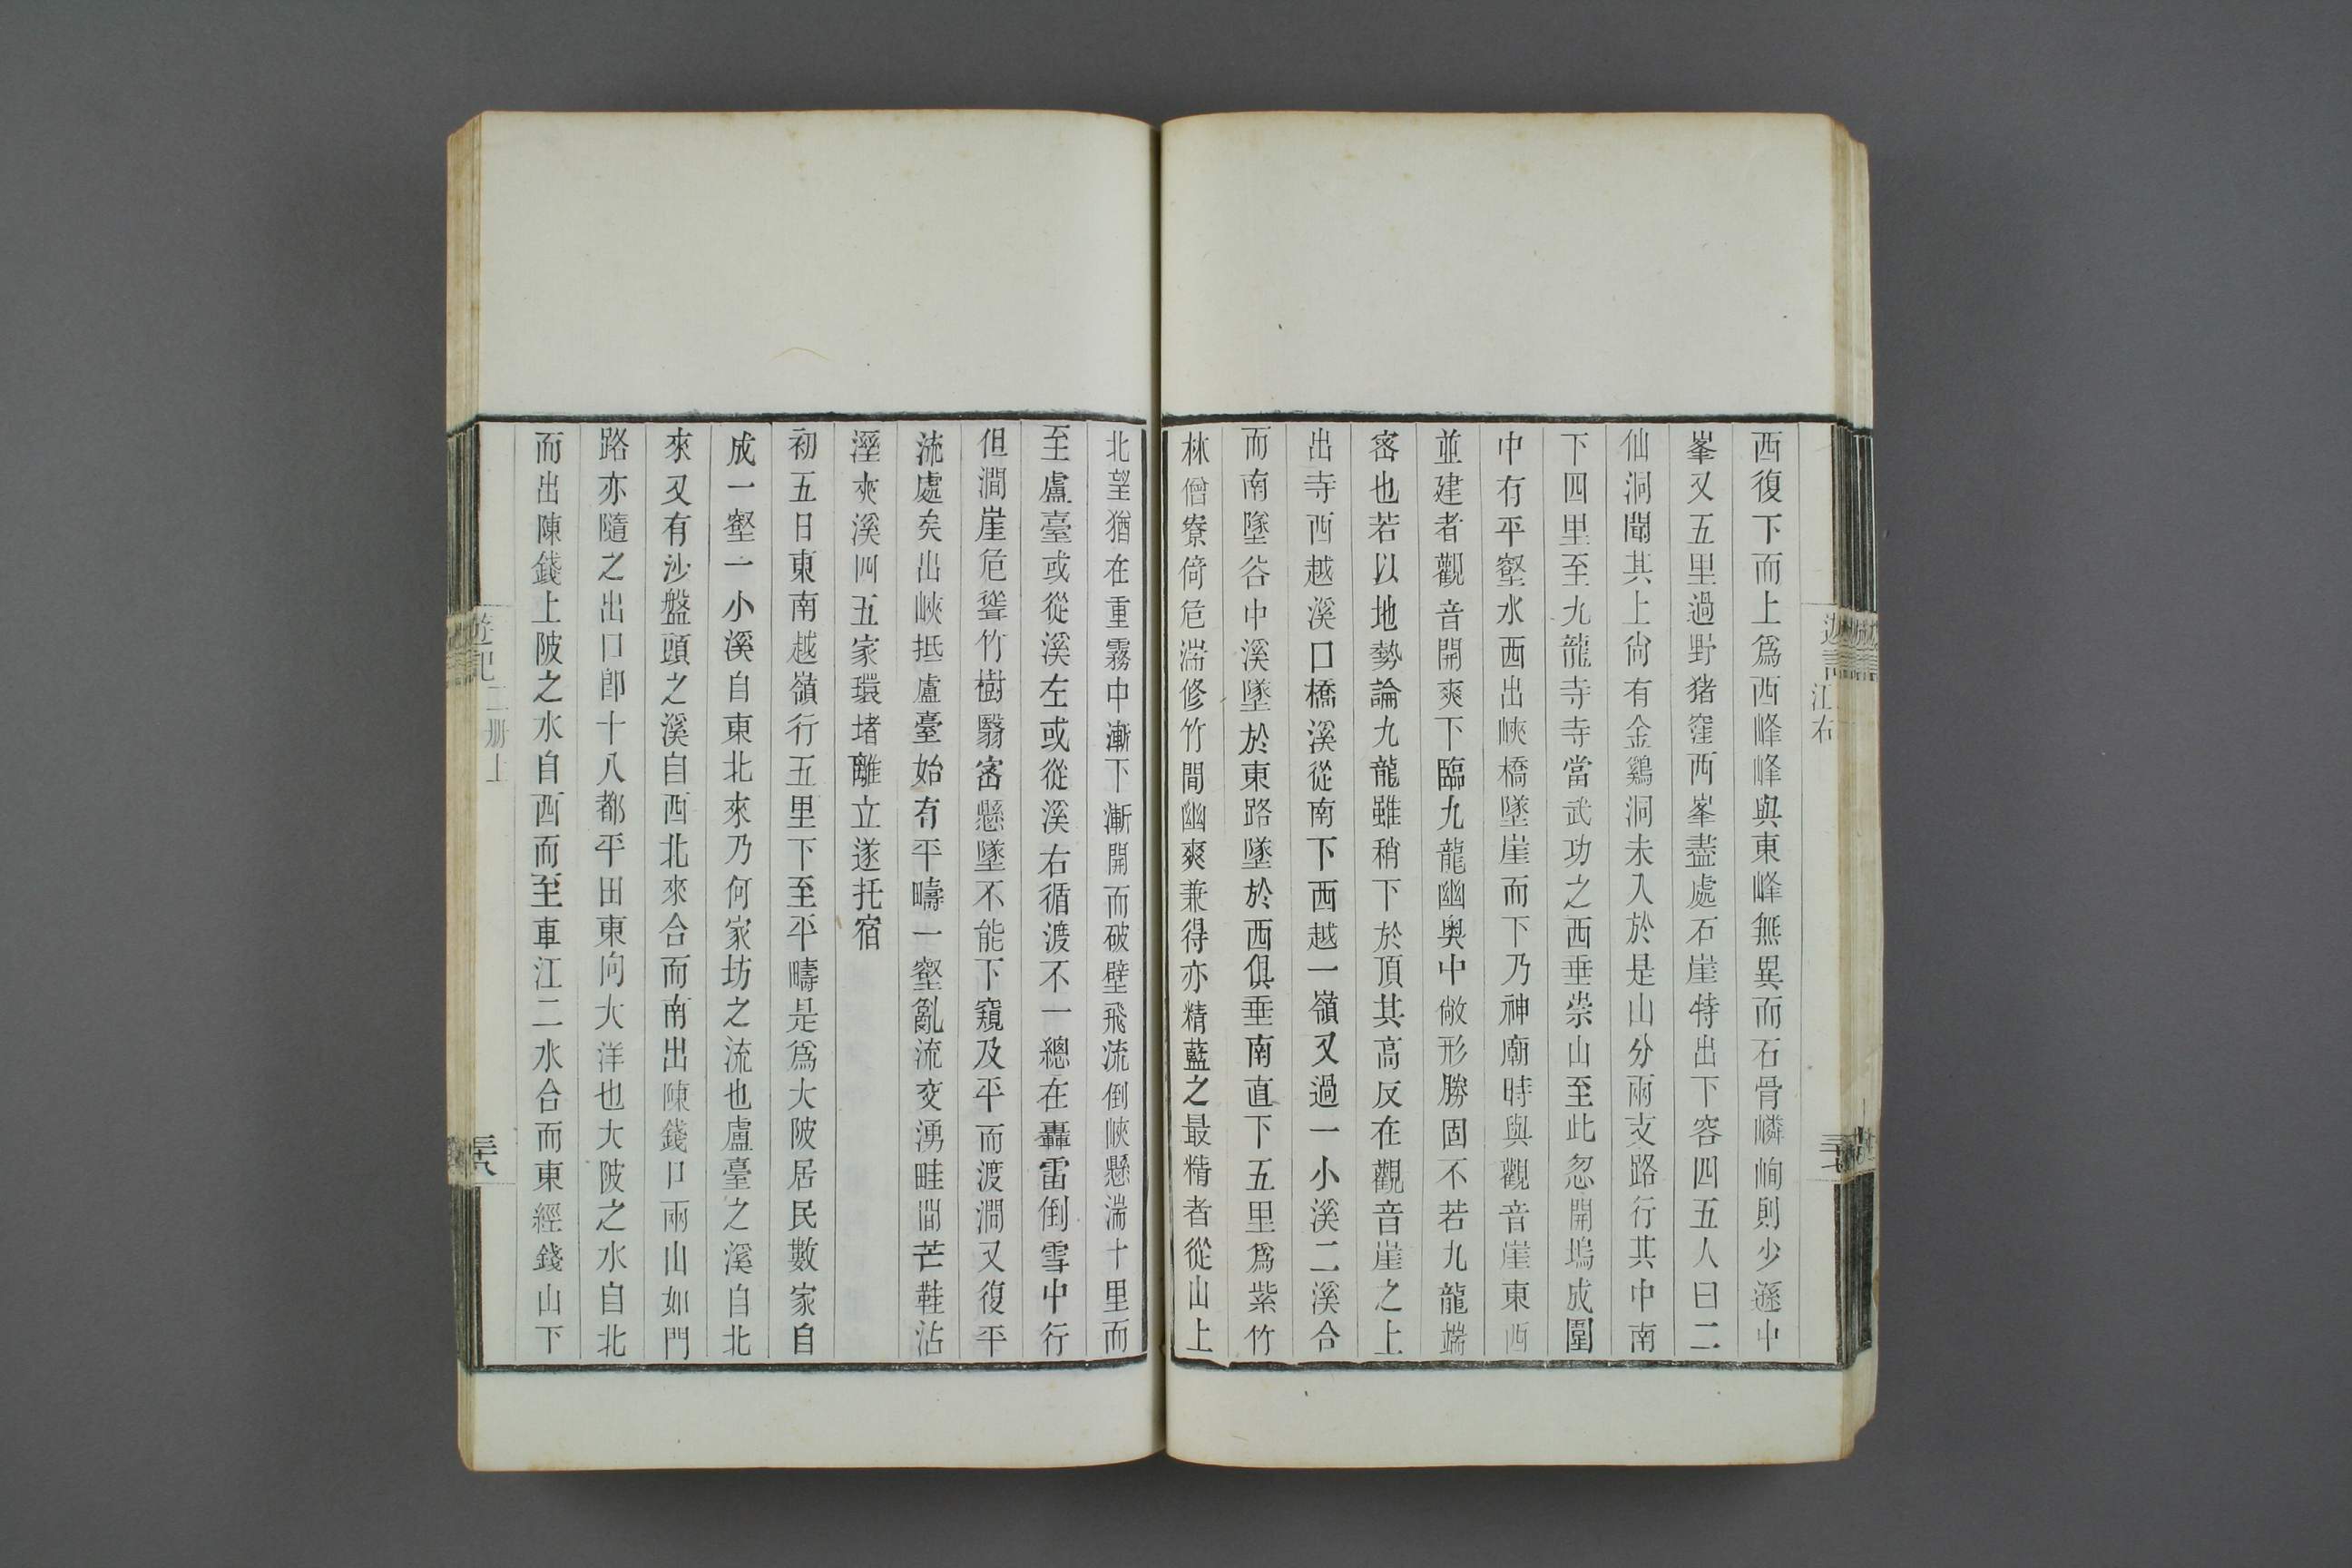 遊記
江右
三十七
西復下而上爲西峰峰與東峰無異而石骨嶙峋則少遜中
峯又五里過野猪窪西峯盡處石崖特出下容四五人曰二
仙洞聞其上尙有金鷄洞未入於是山分兩支路行其中南
下四里至九龍寺寺當武功之西垂崇山至此忽開塢成圍
中有平壑水西出峽橋墜崖而下乃神廟時與觀音崖東西
並建者觀音開爽下臨九龍幽奥中敞形勝固不若九龍端
宻也若以地勢論九龍雖稍下於頂其高反在觀音崖之上
出寺西越溪口橋溪從南下西越一嶺又過一小溪二溪合
而南墜谷中溪墜於東路墜於西俱垂南直下五里爲紫竹
林僧寮倚危湍修竹間幽爽兼得亦精藍之最精者從山上
北望猶在重霧中漸下漸開而破壁飛流倒峽懸湍十里而
至盧臺或從溪左或從溪右循渡不一總在轟雷倒雪中行
但澗崖危聳竹樹翳宻懸墜不能下窺及平而渡澗又復平
流處矣出峽抵盧臺始有平疇一壑亂流交湧畦間芒鞋沾
溼夾溪四五家環堵離立遂托宿
初五日東南越嶺行五里下至平疇是爲大陂居民數家自
成一壑一小溪自東北來乃何家坊之流也盧臺之溪自北
來又有沙盤頭之溪自西北來合而南出陳錢口兩山如門
路亦隨之出口卽十八都平田東向大洋也大陂之水自北
而出陳錢上陂之水自西而至車江二水合而東經錢山下
遊記
二册上
三十八